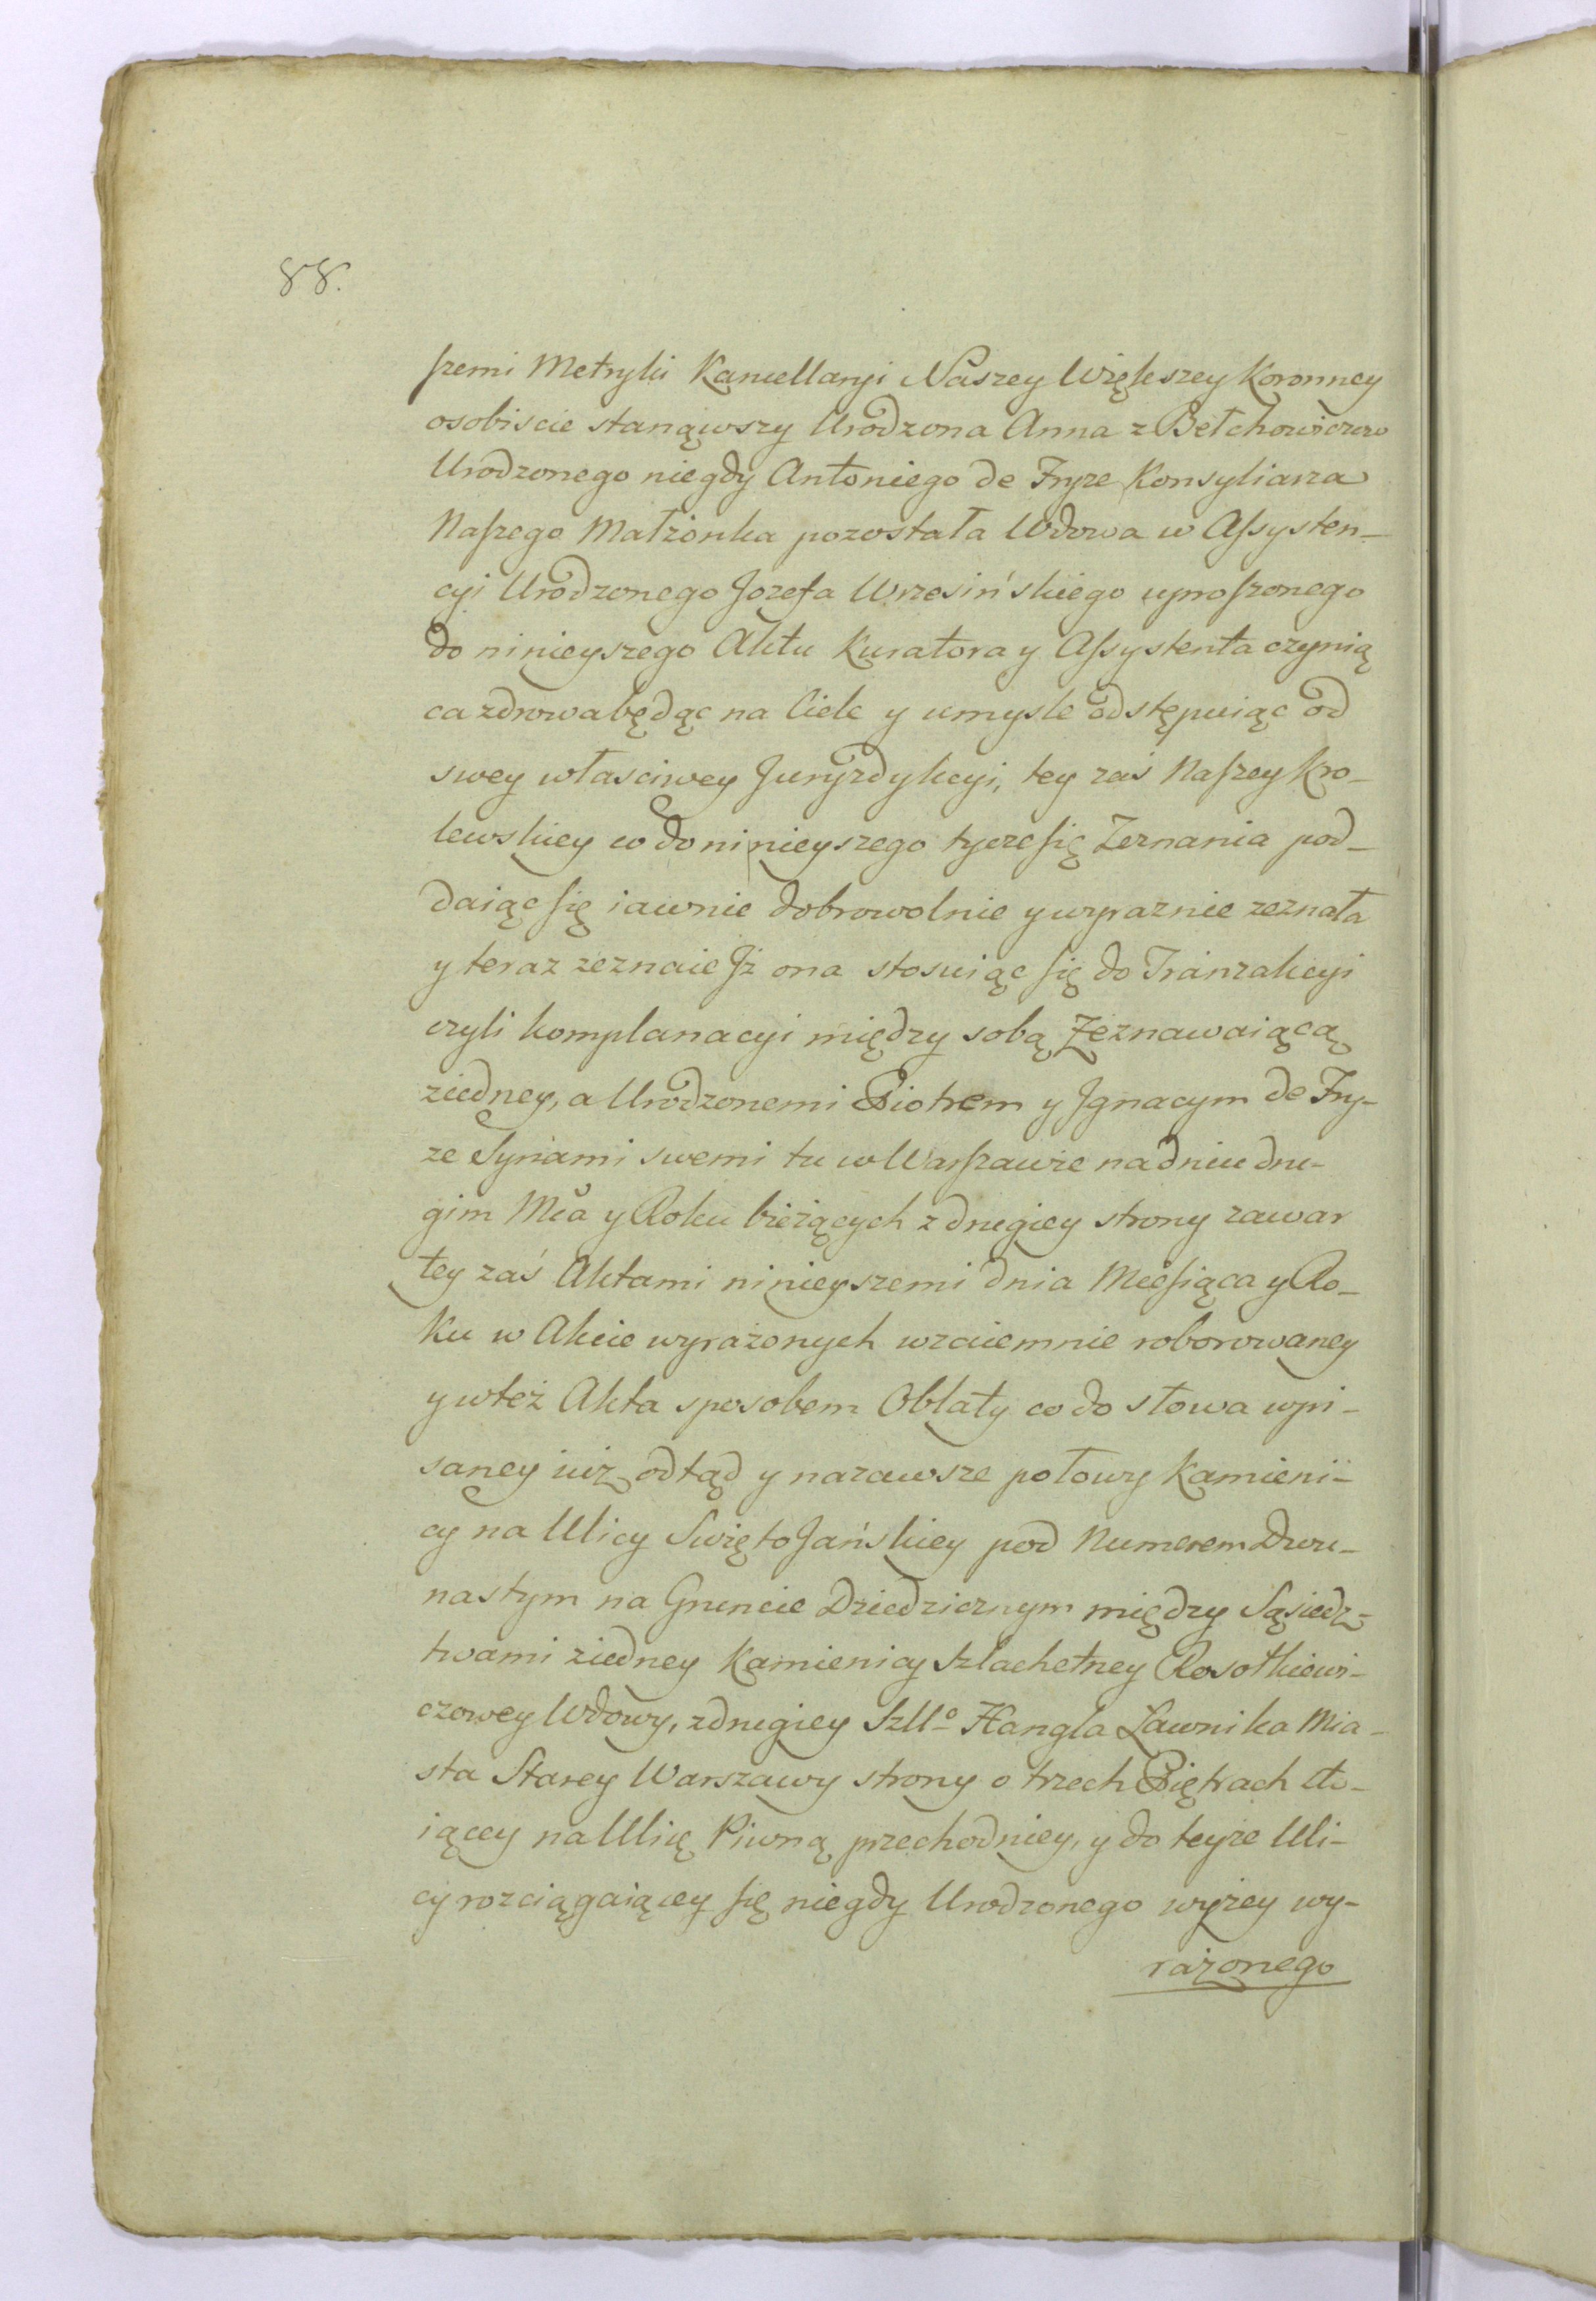 88.
szemi Metryki Kancellaryi Naszey Większey Koronney
osobiscie stanąwszy Urodzona Anna z Bełchowiczow
Urodzonego niegdy Antoniego de Fryze Konsyliarza
Naszego Małżonka pozostała Wdowa w Assysten-
cyi Urodzonego Jozefa Wrzesińskiego uproszonego
do ninieyszego Aktu Kuratora y Assystenta czynią
ca zdrowa będąc na Ciele y umysle odstępuiąc od
swey własciwey Juryzdykcyi, tey zaś Naszey Kro-
lewskiey co do ninieyszego tycze się Zeznania pod-
daiąc się iawnie dobrowolnie y wyraznie zeznała
y teraz zeznaie Jż ona stosuiąc się do Tranzakcyi
czyli komplanacyi między sobą Zeznawaiącą
ziedney, a Urodzonemi Piotrem y Jgnacym de Fry-
ze Synami swemi tu w Warszawie na dniu dru-
gim Mca y Roku bieżących z drugiey strony zawar
tey zaś Aktami ninieyszemi dnia Miesiąca y Ro-
ku w Akcie wyrażonych wzaiemnie roborowaney
y wteż Akta sposobem Oblaty co do słowa wpi-
saney iuż odtąd y nazawsze połowy Kamieni-
cy na Ulicy Swięto Jańskiey pod Numerem Dwu-
nastym na Gruncie Dziedzicznym między Sąsiedz-
twami ziedney Kamienicy Szlachetney Rosołkiewi-
czowey Wdowy, zdrugiey Szllo Hangla Ławnika Mia-
sta Starey Warszawy strony o trzech Piętrach sto-
iącey na Ulicę Piwną przechodniey, y do teyże Uli-
cy rozciągaiącey się niegdy Urodzonego wyżey wy-
rażonego